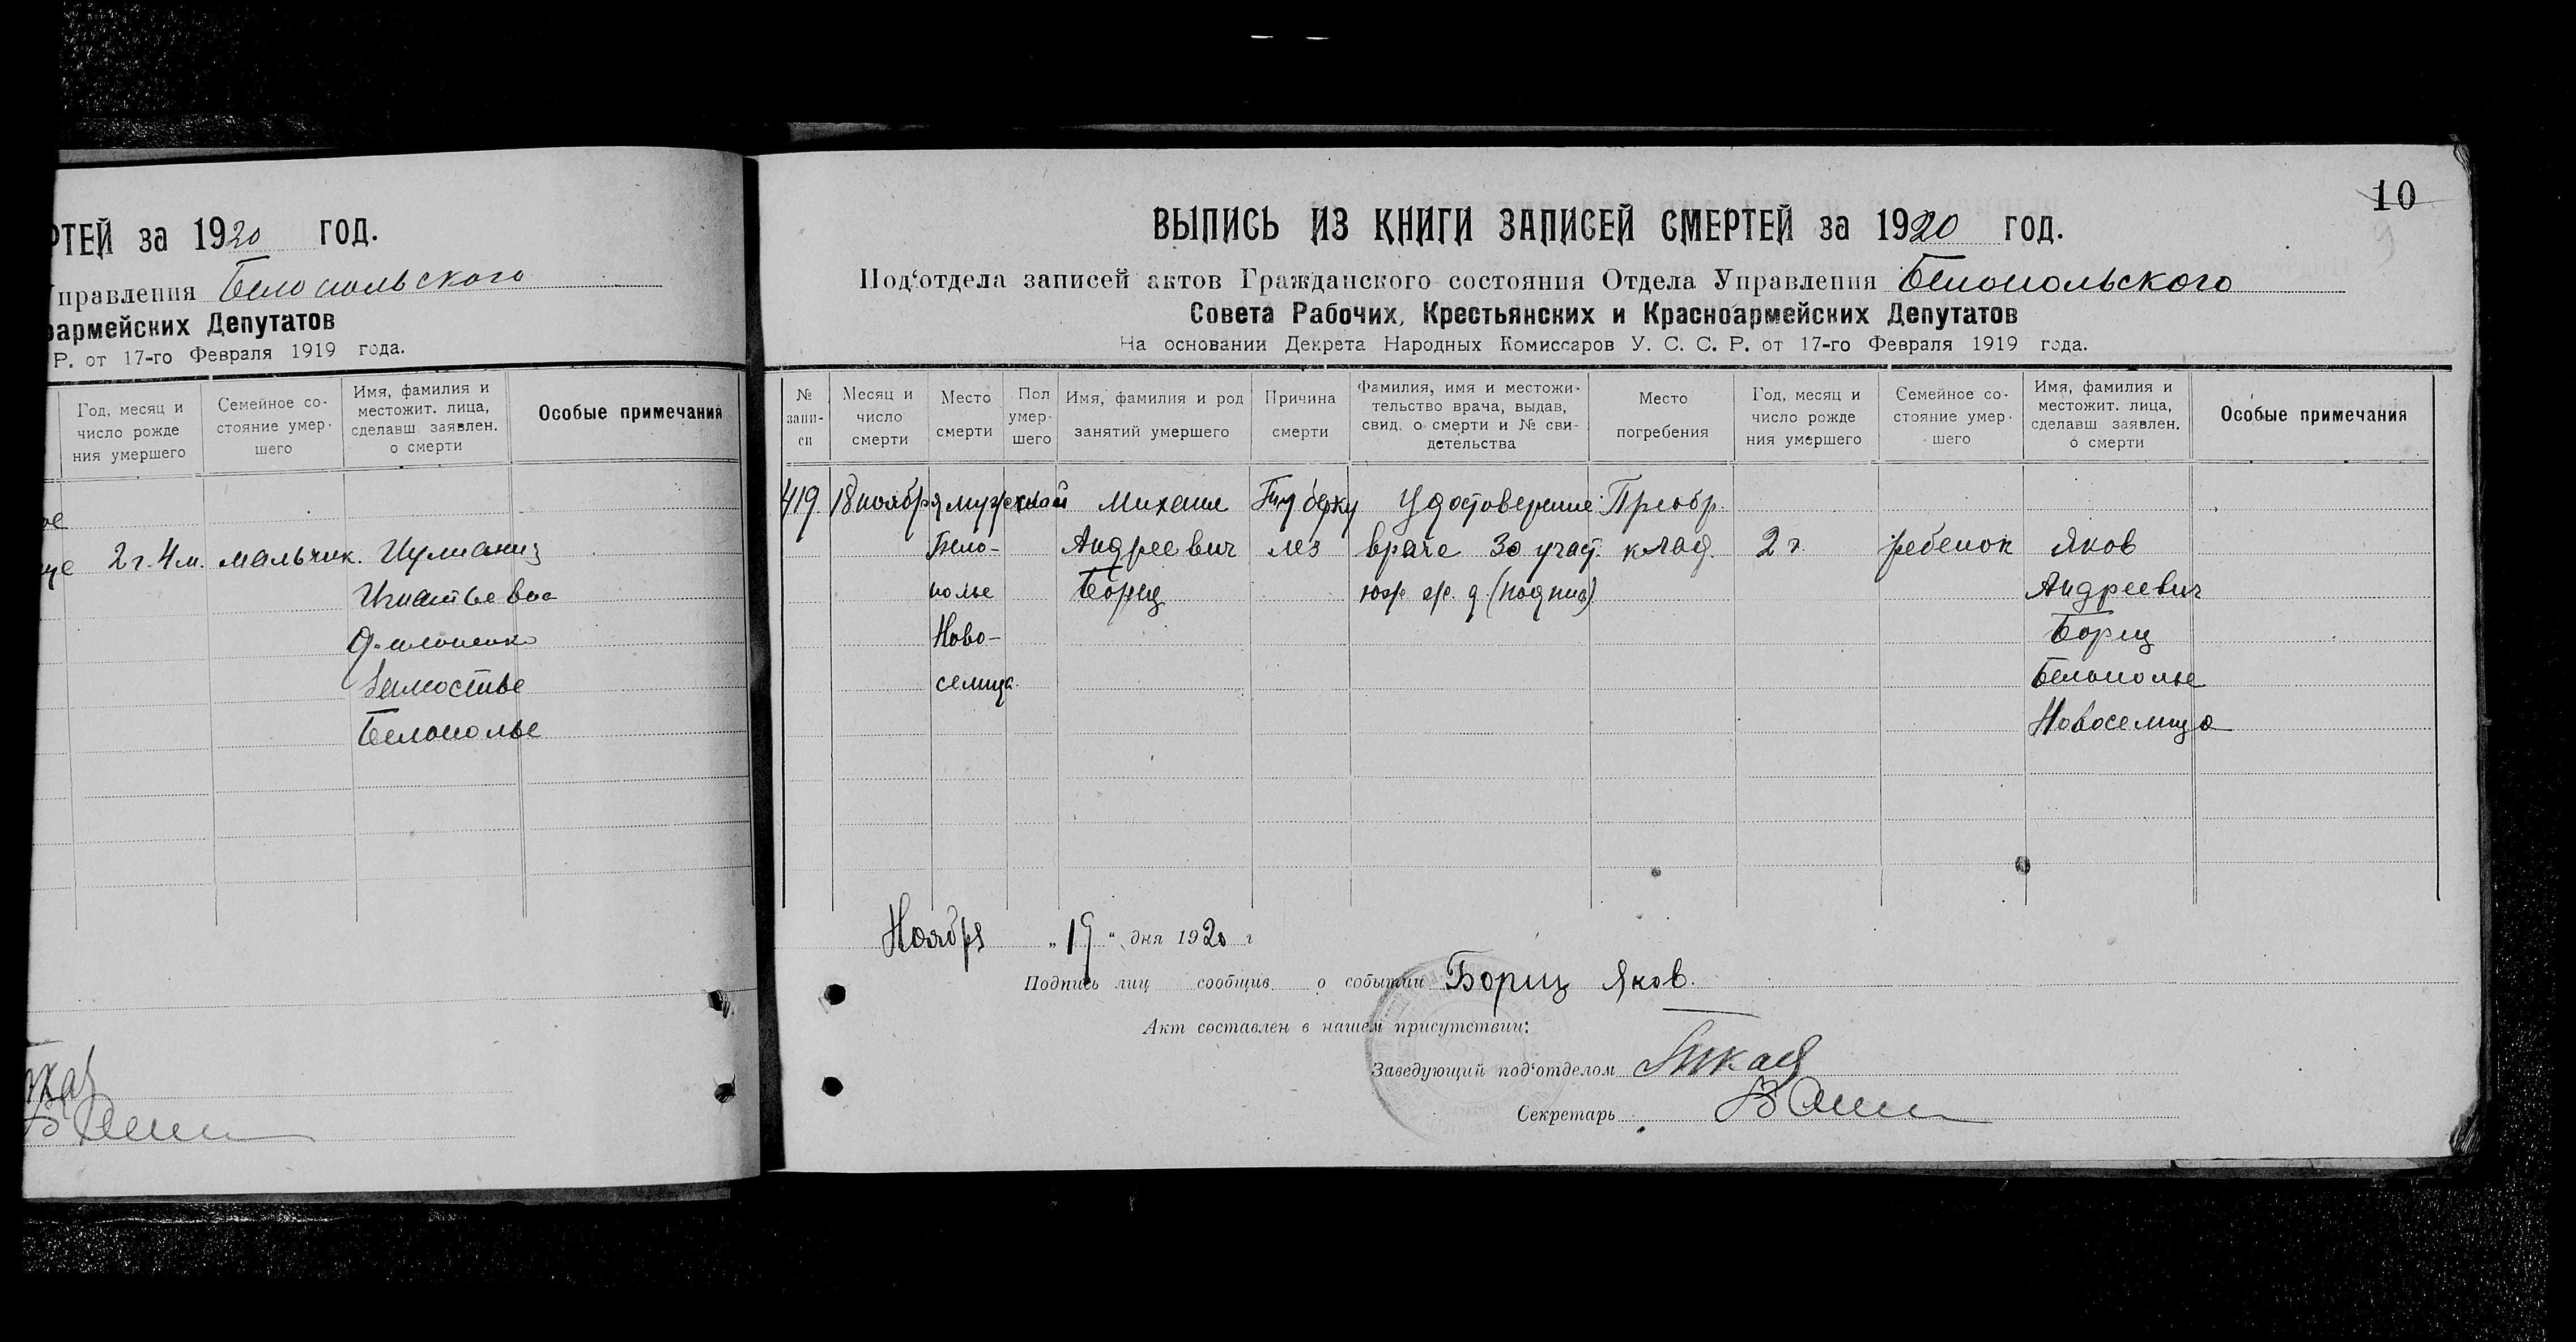 РТЕЙ за 1920 год.
Управления Белопольского
оармейских Депутатов
Р. от 17-го Февраля 1919 года.
Год, месяц и
число рожде
ния умершего
Семейное со-
стояние умер-
шего
Имя, фамилия и
местожит. лица,
сделавш. заявлен.
о смерти
Особые примечания
2 г. 4 м. мальчик.
Игнатьевна
Замостье
Белополье
10
9
ВЫПИСЬ ИЗ КНИГИ ЗАПИСЕЙ СМЕРТЕЙ за 1920 год.
Под'отдела записей актов Гражданского состояния Отдела Управления Белопольского
Совета Рабочих, Крестьянских и Красноармейских Депутатов
На основании Декрета Народных Комиссаров У. С. С. Р. от 17-го Февраля 1919 года.
№
запи-
си
Месяц и
число
смерти
Место
смерти
Пол
умер-
шего
Имя, фамилия и род
занятий умершего
Причина
смерти
Фамилия, имя и местожи-
тельство врача, выдав,
свид. о смерти и № сви-
детельства
Место
погребения
Год, месяц и
число рожде
ния умершего
Семейное со-
стояние умер-
шего
Имя, фамилия и
местожит. лица,
сделавш заявлен.
о смерти
Особые примечания
419 18 ноября мужской Михаил Туберку Удостоверение Преобр.
Бело- Андреевич лез врача 30 участ. клад. 2 г. ребенок Яков
полье Борщ юж. ж. д. (подпись) Андреевич
Ново- Борщ
селица Белополье
Новоселица
Ноября „19“ дня 1920 г
Подпись лиц сообщив. о событии Борщ Яков.
Акт составлен в нашем присутствии:
Заведующий под'отделом
Секретарь